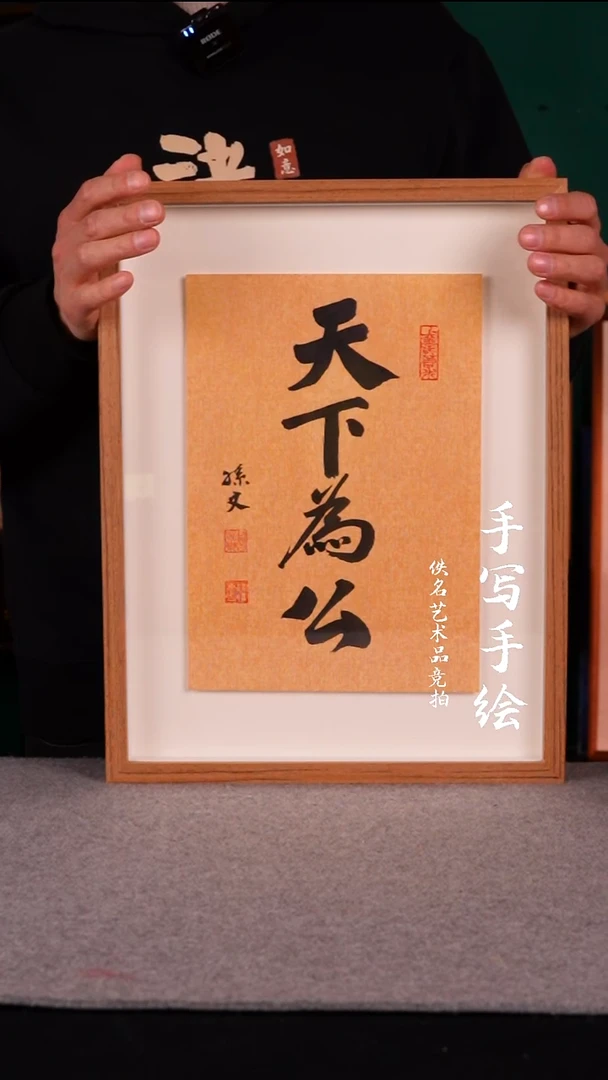 RODE
如意
天下為公
孫文
手写手绘
佚名艺术品竞拍